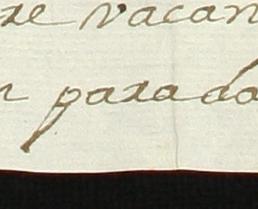 se vacan
n parado